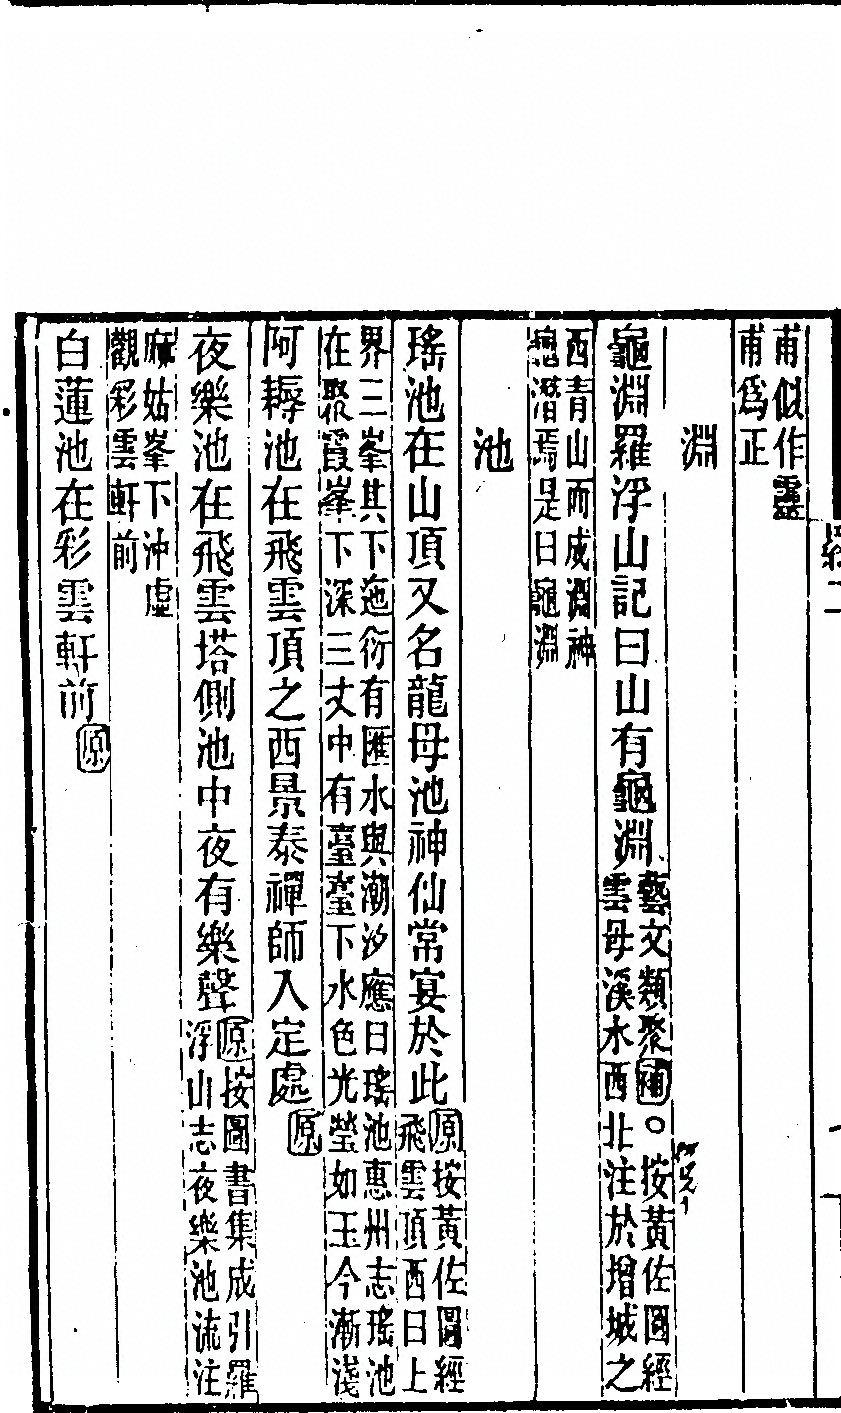 甫似作靈
甫爲正
淵
龜淵羅浮山記曰山有龜淵藝文類聚補○按黃佐圖經
雲母溪水西北注於增城之
西青山而成淵神
龜潛焉是曰龜淵
池
瑤池在山頂又名龍母池神仙常宴於此原按黃佐圖經
飛雲頂西曰上
界三峯其下迤衍有匯水與潮汐應曰瑤池惠州志瑤池
在聚霞峯下深三丈中有臺臺下水色光瑩如玉今漸淺
阿耨池在飛雲頂之西景泰禪師入定處原
夜樂池在飛雲塔側池中夜有樂聲原按圖書集成引羅
浮山志夜樂池流注
麻姑峯下沖虛
觀彩雲軒前
白蓮池在彩雲軒前原